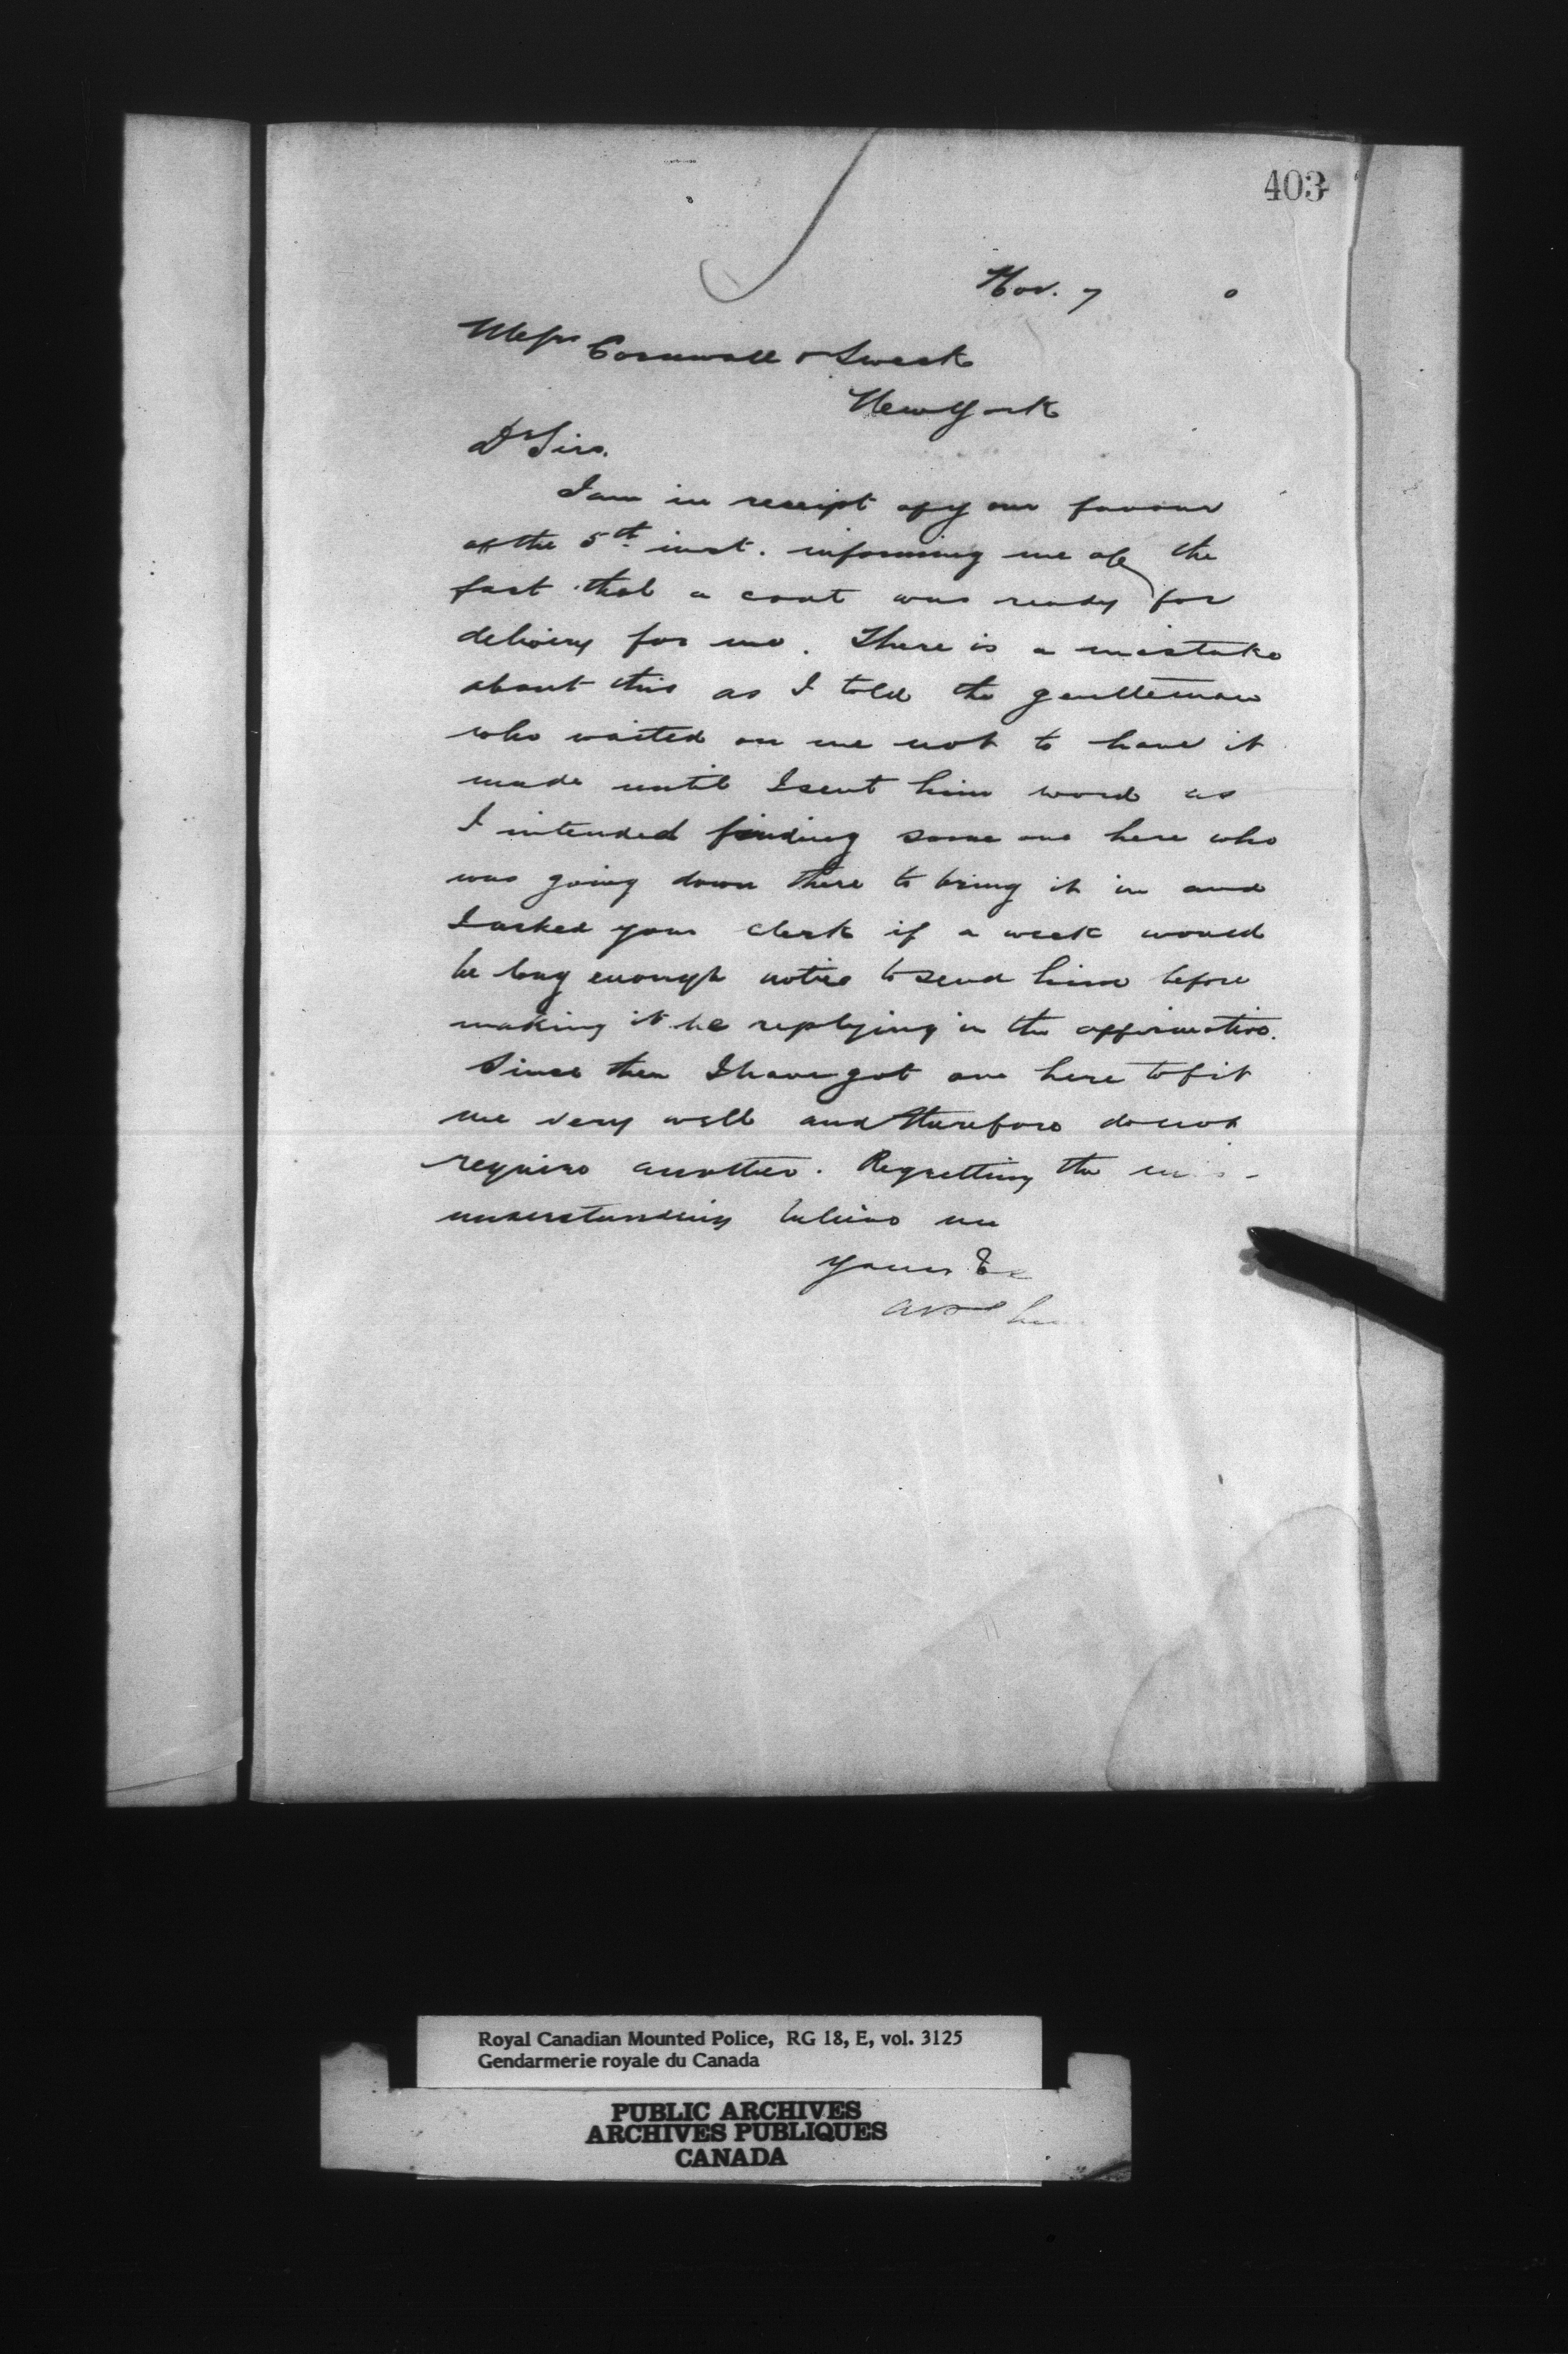 403
Nov. 7 0
Messrs Cornwall &
New York
Dr Sirs.
I am in receipt of your favour
of the 5th inst. informing me of the
fact that a coat was ready for
delivery for me. There is a mistake
about this as I told the gentleman
who waited on me not to have it
made until I sent him word as
I intended finding some one here who
was going down there to bring it in and
I asked your clerk if a week would
be long enough notice to send him before
making it he replying in the affirmative.
Since then I have got one here to fit
me very well and therefore do not
require another. Regretting the mis-
understanding believe me
Yours &c
Royal Canadian Mounted Police, RG 18, E, vol. 3125
Gendarmerie royale du Canada
PUBLIC ARCHIVES
ARCHIVES PUBLIQUES
CANADA